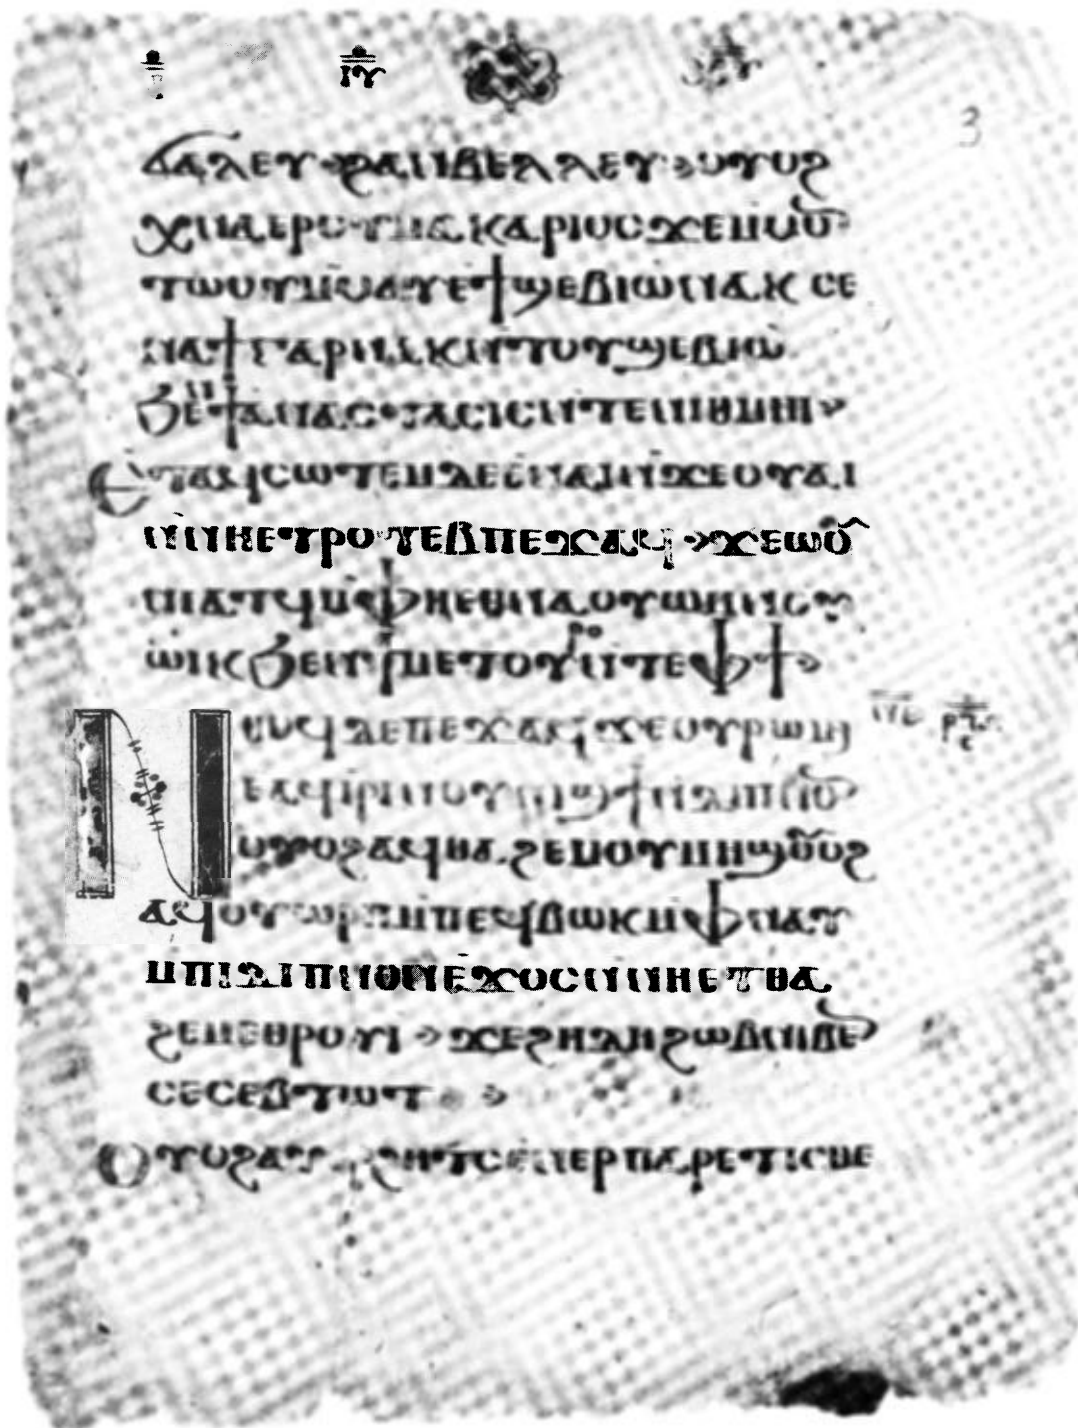 ϭⲁⲗⲉⲩ ϩⲁⲛⲃⲉⲗⲗⲉⲩ ⲟⲩⲟϩ
ⲭⲛⲁⲉⲣⲟⲩⲙⲁⲕⲁⲣⲓⲟⲥ ϫⲉⲙⲙⲟ̅
ⲧⲱⲟⲩⲙⲙⲁⲩⲉϯϣⲉⲃⲓⲱⲛⲁⲕ ⲥⲉ
ⲛⲁϯⲅⲁⲣⲛⲁⲕⲛⲧⲟⲩϣⲉⲃⲓⲱ
ϧⲉⲛϯⲁⲛⲁⲥⲧⲁⲥⲓⲥⲛⲧⲉⲛⲓⲑⲙⲏⲓ
ⲉⲧⲁϥⲥⲱⲧⲉⲙⲇⲉⲉⲛⲁⲓⲛϫⲉⲟⲩⲁⲓ
ⲛⲛⲏⲉⲧⲣⲟⲧⲉⲃⲡⲉϫⲁϥ ϫⲉⲱⲟ̅
ⲛⲓⲁⲧϥⲙⲫⲏⲉⲑⲛⲁⲟⲩⲱⲙⲛⲟⲩ
ⲱⲓⲕϧⲉⲛϯⲙⲉⲧⲟⲩⲣⲟⲛⲧⲉⲫϯ
ⲛⲑⲟϥⲇⲉⲡⲉϫⲁϥϫⲉⲟⲩⲣⲱⲙⲓ
ⲉⲁϥⲓⲣⲓⲛⲟⲩⲛⲓϣϯⲛⲇⲓⲡⲛⲟ̅
ⲟⲩⲟϩⲁϥⲑⲁϩⲉⲙⲟⲩⲙⲏϣⲟⲩⲟϩ
ⲁϥⲟⲩⲱⲣⲡⲙⲡⲉϥⲃⲱⲕⲙⲫⲛⲁⲩ
ⲙⲡⲓⲇⲓⲡⲛⲟⲛⲉϫⲟⲥⲛⲛⲏⲉⲧⲑⲁ
ϩⲉⲙⲉⲑⲣⲟⲩⲓ ϫⲉϩⲏⲇⲏϩⲱⲃⲛⲓⲃⲉ̅
ⲥⲉⲥⲉⲃⲧⲱⲧ
ⲟⲩⲟϩⲁⲩⲉⲣϩⲏⲧⲥⲉⲉⲣⲡⲁⲣⲉⲧⲓⲥⲑⲉ